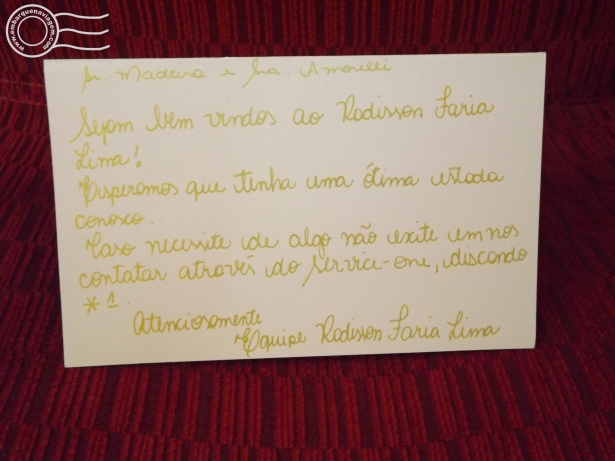 www.embarquenaviagem.com
Sr. Madeira e Sra. Amorelli
Sejam bem vindos ao Radisson Faria
Lima!
Esperamos que tenha uma ótima estada
conosco.
Caso necessite de algo não exite em nos
contatar através do service-one, discando
*1.
Atenciosamente
Equipe Radisson Faria Lima